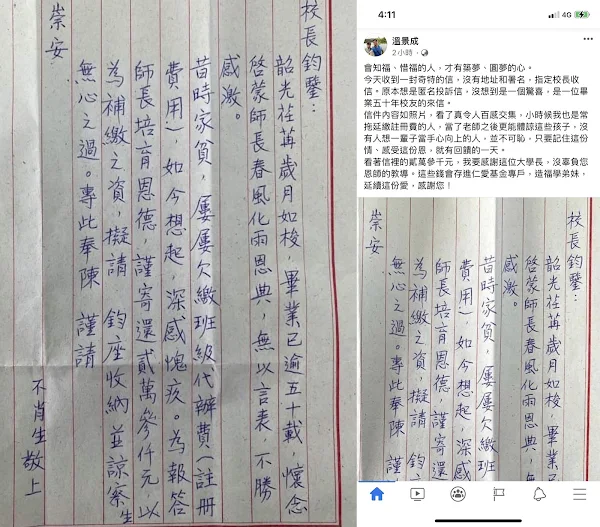 校長鈞鑒：
韶光荏苒歲月如梭，畢業已逾五十載，懷念
啓蒙師長春風化雨恩典，無以言表，不勝
感激。
昔時家貧，屢屢欠繳班級代辦費（註冊
費用），如今想起，深感愧疚。為報答
師長培育恩德，謹寄還貳萬參仟元，以
為補繳之資，擬請 鈞座收納並諒察生
無心之過。專此奉陳 謹請
崇安
不肖生敬上
4:08
4G
溫景成
2 小時 ·
會知福、惜福的人，才有築夢、圓夢的心。
今天收到一封奇特的信，沒有地址和署名，指定校長收
信。原本想是匿名投訴信，沒想到是一個驚喜，是一位畢
業五十年校友的來信。
信件內容如照片，看了真令人百感交集，小時候我也是常
拖延繳註冊費的人，當了老師之後更能體諒這些孩子，沒
有人想一輩子當手心向上的人，並不可恥，只要記住這份
情、感受這份恩，就有回饋的一天。
看著信裡的貳萬參千元，我要感謝這位大學長，沒辜負您
恩師的教導。這些錢會存進仁愛基金專戶，造福學弟妹，
延續這份愛，感謝您！
校長鈞鑒：
韶光荏苒歲月如梭，畢業已
啓蒙師長春風化雨恩典，無
感激。
昔時家貧，屢屢欠繳班
費用），如今想起，深感
師長培育恩德，謹寄還
為補繳之資，擬請 鈞
無心之過。專此奉陳 謹
崇安